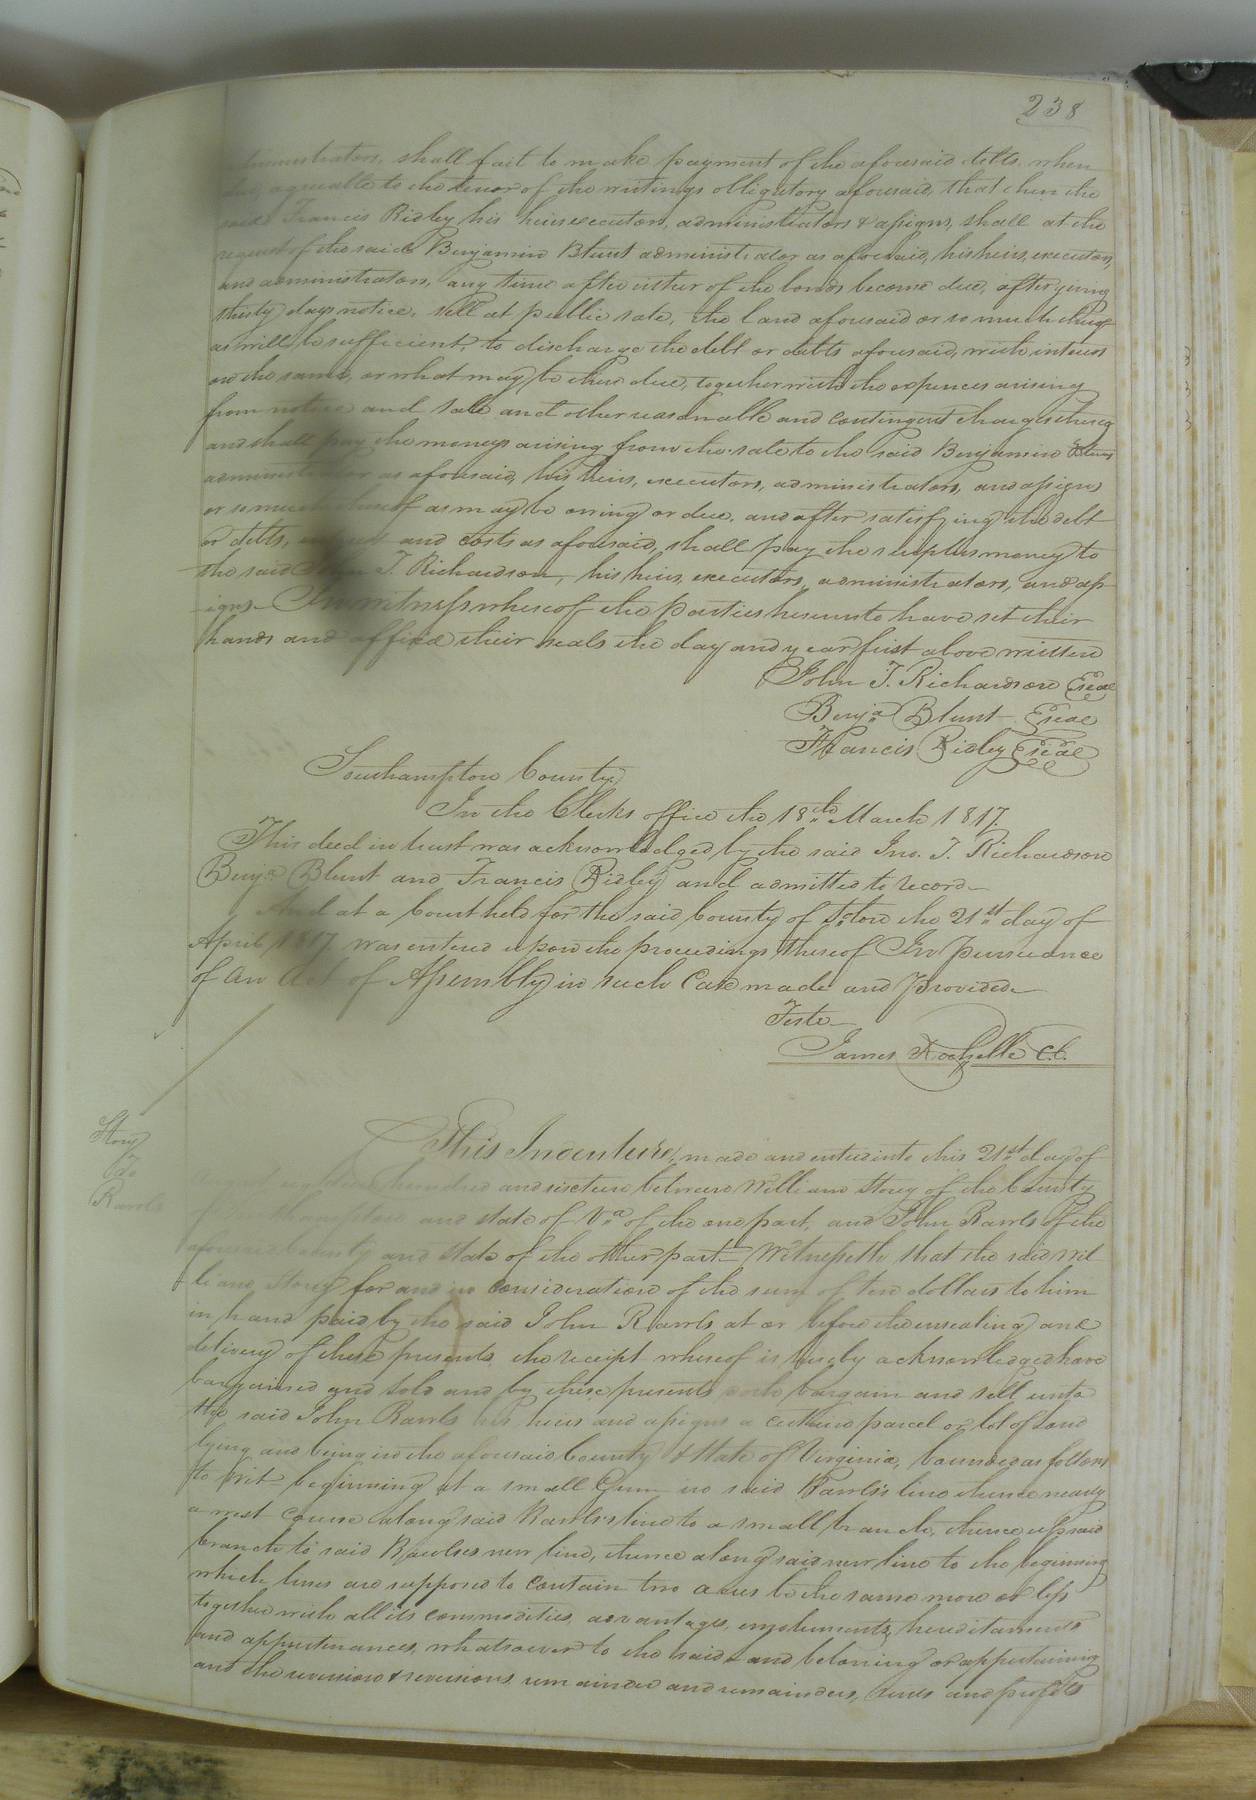 238
administrators, shall fail to make payment of the aforesaid debts, when
due, agreeable to the tenor of the writings obligatory aforesaid, that then the
said Francis Ridley his heirs executors, administrators & assigns, shall at the
request of the said Benjamin Blunt administrator as aforesaid, his heirs, executors,
and administrators, any time after either of the bonds become due, after giving
thirty days notice, sell at public sale, the land aforesaid or so much thereof
as will be sufficient, to discharge the debt or debts aforesaid, with interest
on the same, or what may be then due, together with the expences arising
from notice and sale and other reasonable and contingent charges thereof
and shall pay the moneys arising from the sale to the said Benjamin Blunt
administrator as aforesaid, his heirs, executors, administrators, and assigns
or so much thereof as may be owing or due, and after satisfying the debt
or debts, interest and costs as aforesaid, shall pay the surplus money to
the said John T. Richardson, his heirs, executors, administrators, and as-
signs. In witness whereof the parties hereunto have set their
hands and affixed their seals the day and year first above written
John T. Richardson Seal
Benja Blunt Seal
Francis Ridley Seal
Southampton County
In the Clerks office the 18th March 1817
This deed in trust was acknowledged by the said Jno. T. Richardson
Benja Blunt and Francis Ridley and admitted to record
And at a Court held for the said County of Soton the 21st day of
April 1817 was entered upon the proceedings thereof In pursuance
of An Act of Assembly in such Case made and Provided
Teste
James Rochelle C.C.
Story
To
Rawls
This Indenture, made and entered into this 21st day of
eighteen hundred and sixteen between William Storey of the County
of Southampton and state of Va. of the one part, and John Rawls of the
aforesaid County and state of the other part Witnesseth, that the said Wil
liam Storey for and in consideration of the sum of ten dollars to him
in hand paid by the said John Rawls at or before the ensealing and
delivery of these presents, the receipt whereof is hereby acknowledged have
bargained and sold and by these presents doth bargain and sell unto
the said John Rawls his heirs and assigns a certain parcel or lot of Land
lying and being in the aforesaid County & State of Virginia, bounded as follows
to wit beginning at a small Gum in said Rawls's line thence nearly
a west course along said Rawls's line to a small branch, thence up said
branch to said Rawlses new line, thence along said new line to the beginning
which lines are supposed to contain two acres be the same more or less
together with all its commodities, advantages, emoluments, hereditaments
and appurtenances, whatsoever to the said land beloning or appertaining
and the reversion & reversions, remainder and remainders, rents and profits